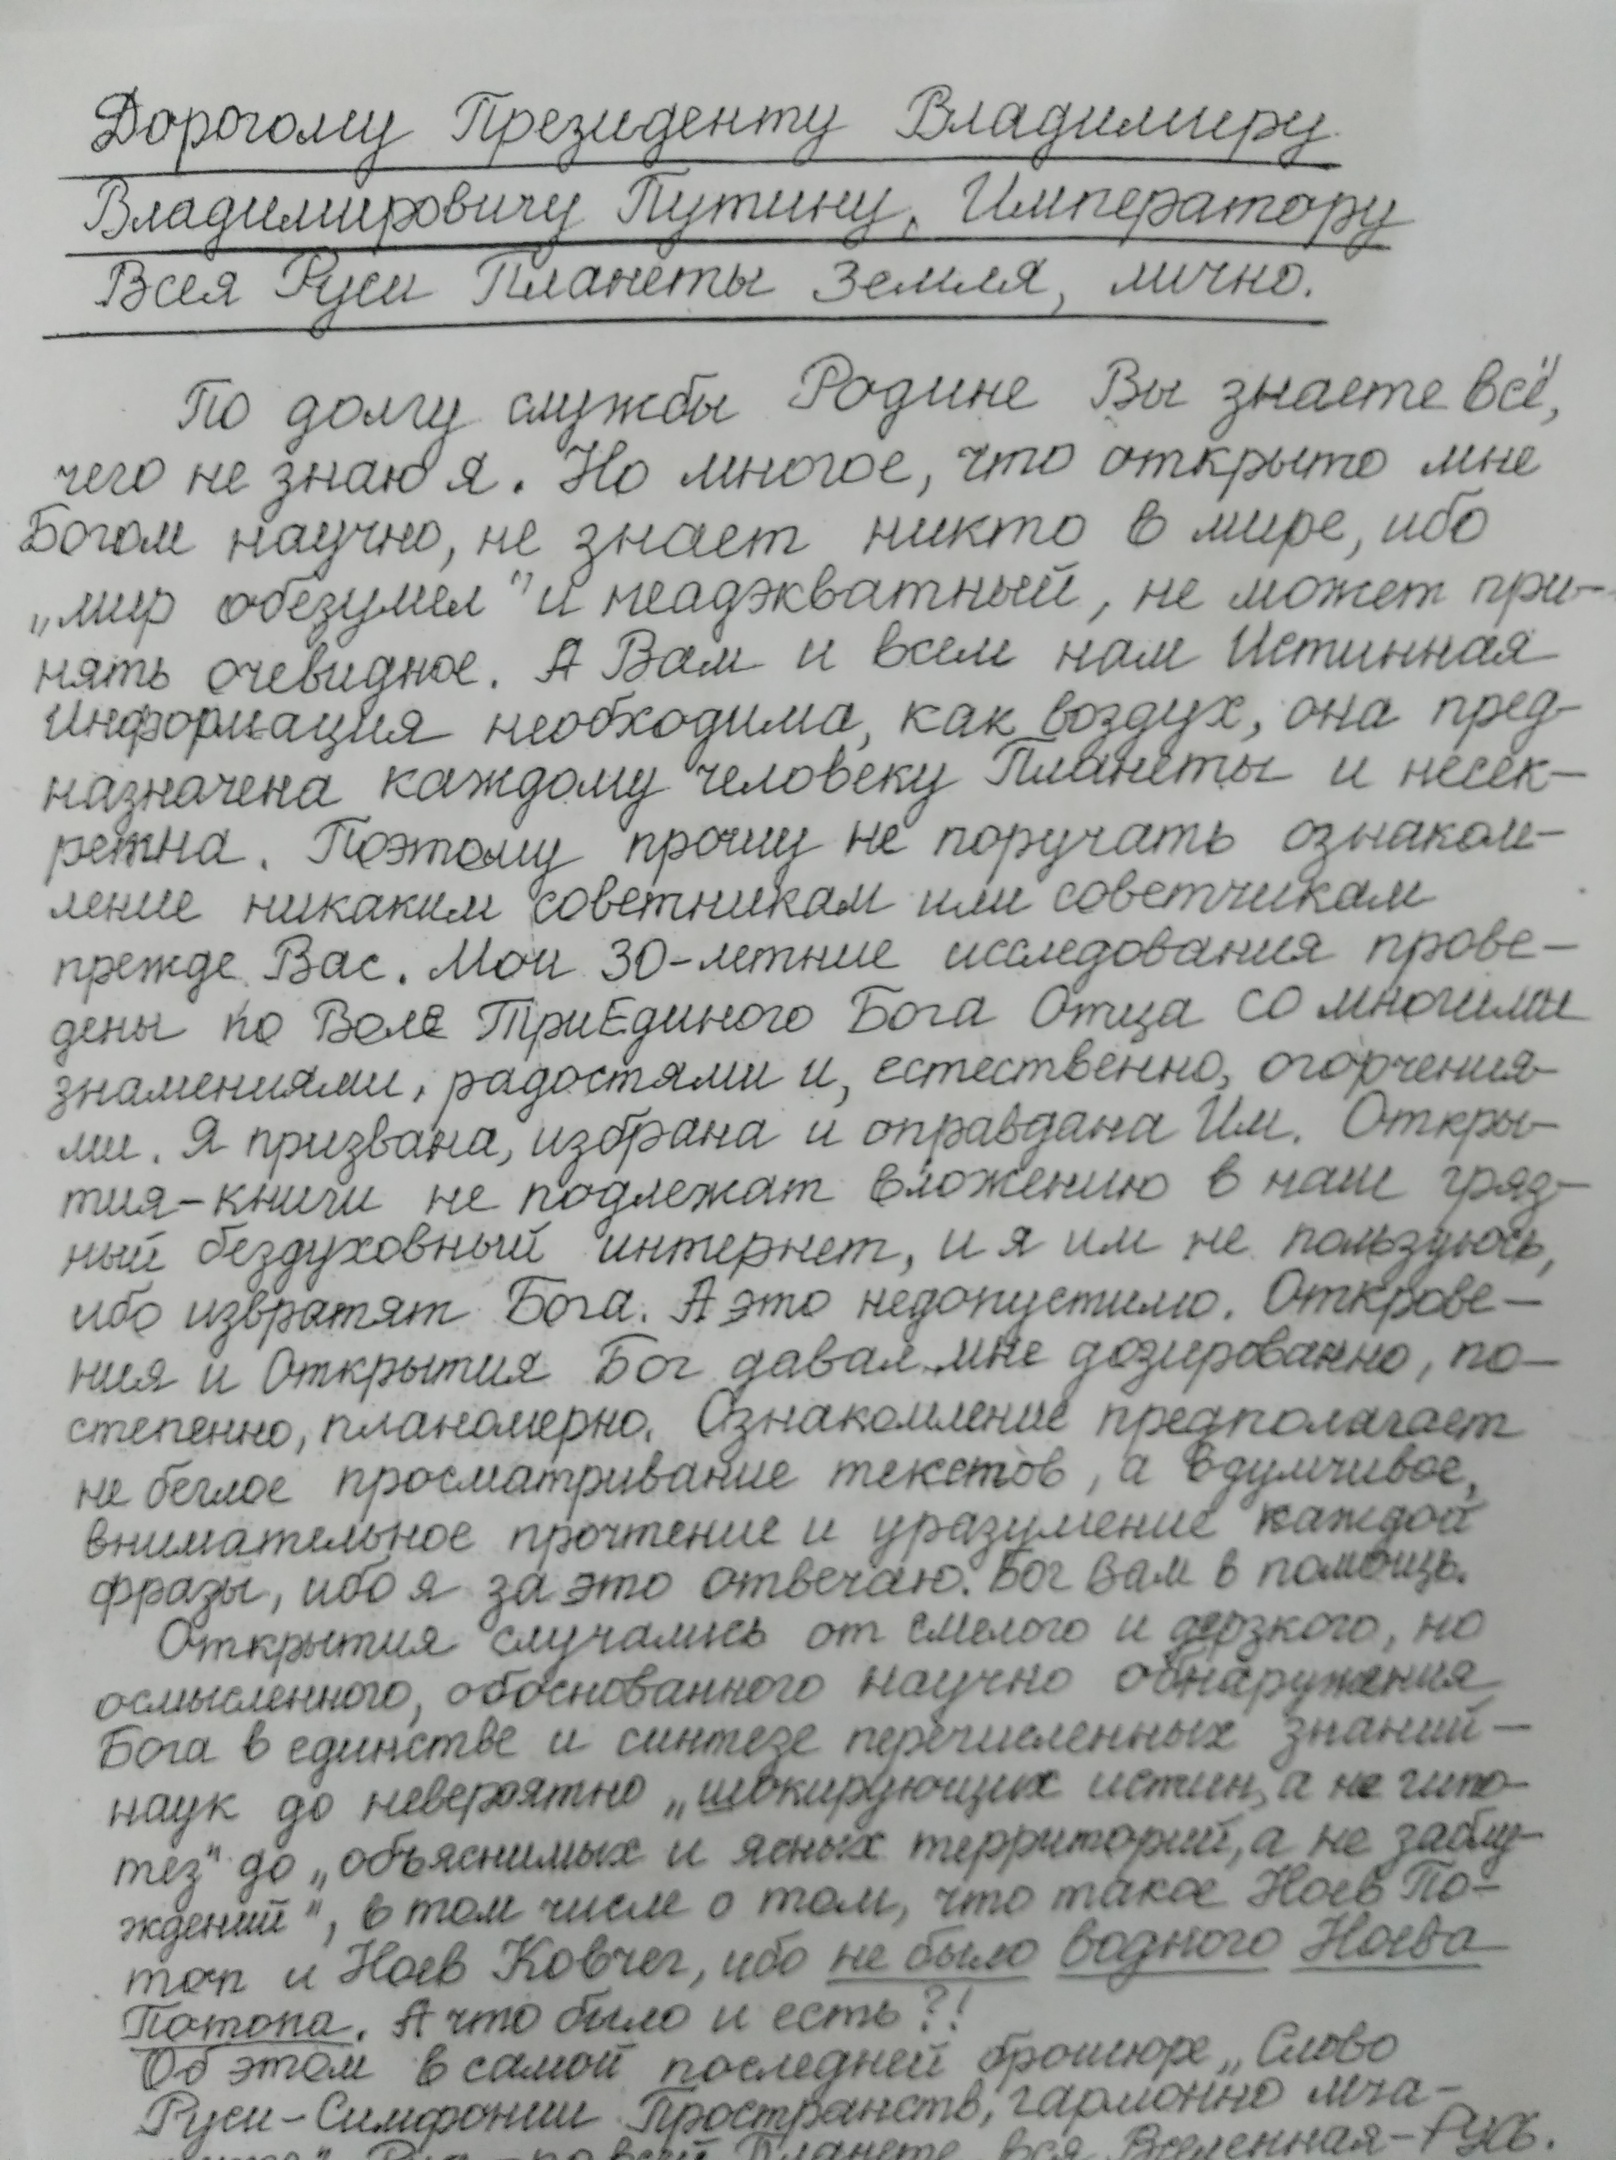 Дорогому Президенту Владимиру
Владимировичу Путину, Императору
Всея Руси Планеты Земля, лично.
По долгу службы Родине Вы знаете всё,
чего не знаю я. Но многое, что открыто мне
Богом научно, не знает никто в мире, ибо
„мир обезумел" и неадэкватный, не может при-
нять очевидное. А Вам и всем нам Истинная
Информация необходима, как воздух, она пред-
назначена каждому человеку Планеты и несек-
ретна. Поэтому прошу не поручать ознаком-
ление никаким советникам или советчикам
прежде Вас. Мои 30-летние исследования прове-
дены по Воле ТриЕдиного Бога Отца со многими
знамениями, радостями и, естественно, огорчения-
ми. Я призвана, избрана и оправдана Им. Откры-
тия-книги не подлежат вложению в наш гряз-
ный бездуховный интернет, и я им не пользуюсь,
ибо извратят Бога. А это недопустимо. Открове-
ния и Открытия Бог давал мне дозированно, по-
степенно, планомерно. Ознакомление предполагает
не беглое просматривание текстов, а вдумчивое,
внимательное прочтение и уразумение каждой
фразы, ибо я за это отвечаю. Бог вам в помощь.
Открытия случались от смелого и дерзкого, но
осмысленного, обоснованного научно обнаружения
Бога в единстве и синтезе перечисленных знаний-
наук до невероятно „шокирующих истин, а не гипо-
тез" до „объяснимых и ясных территорий, а не заблу-
ждений", в том числе о том, что такое Ноев По-
топ и Ноев Ковчег, ибо не было водного Ноева
Потопа. А что было и есть?!
Об этом в самой последней брошюре „Слово
Руси-Симфонии Пространств, гармонно мча-
Планете, вся Вселенная-Русь.